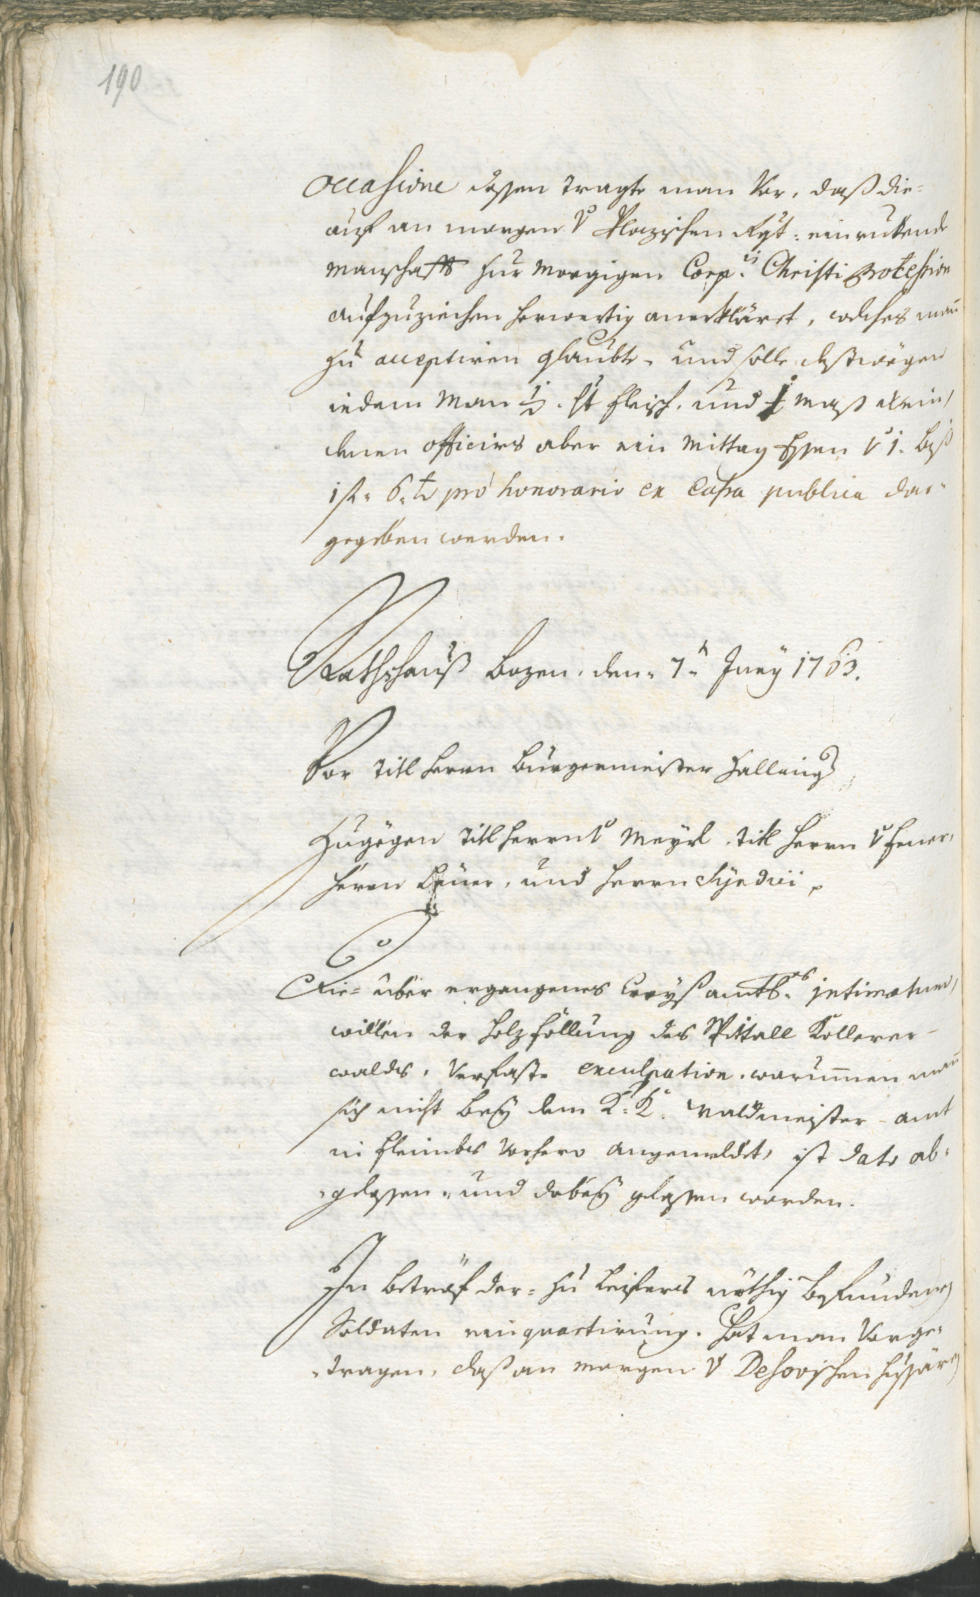 190
occasione dessen tragte man vor, daß die=
auf an morgen v. Plazischen Rgt: einrukende
manschafft zur morgigen Corp:is Christi Procession
aufzuziechen herwertig anerkläret, welches man
zu acceptiren glaubte, und solle destwegen
iedem Man ½ ℔ fleisch, und 1 maß wein,
denen officiers aber ein Mittag Essen v 1. biß
1 fl. 6 xr pro honorario ex Cassa publica dar=
gegeben werden.
Rathshauß Bozen, den 7:ten Juny 1763.
Vor Titl herrn Bürgermeister
Zugegen Titl herrn v Meyrl, Titl herrn v
herrn und herrn Syndici,
Die über ergangenes Creyßambts:es intimatum,
willen der holzföllung des Spittall Kollerer=
walds, verfaste exculpation, warummen man
sich nicht bey dem K: K: waldmeister=amt
in fleimbs vorhero angemeldet, ist dato ab=
=gelesen, und dabey gelassen worden.
In beträf der= zu Leifers nöthig befundenen
Soldaten einquartirung, hat man Vorge=
=tragen, daß an morgen v Desovischen hussären